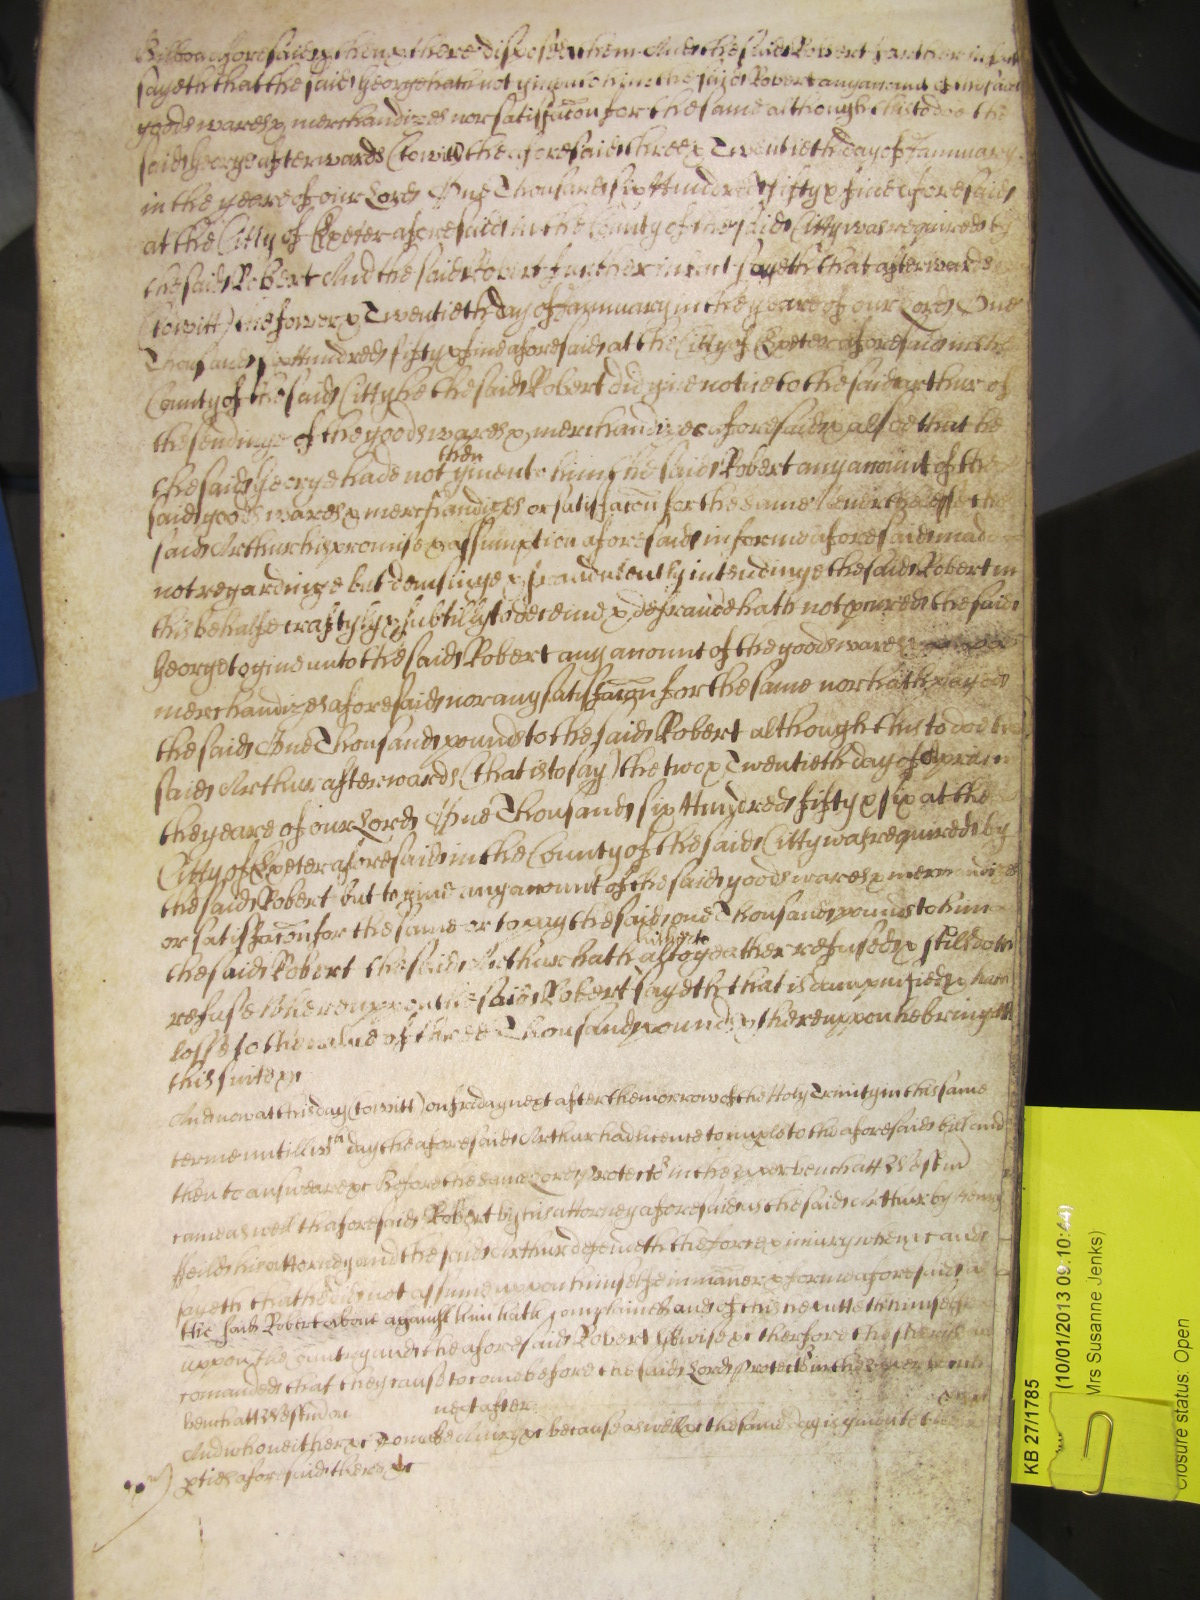 Bilboa aforesaid & then & there disposed them And the said Robert further in fact
sayeth that the said George hath not given to him the said Robert any accompt of the said
goods wares & merchandizes nor satisfaccon for the same although this to doe the
said George afterwards (to witt) the aforesaid three & Twentieth day of January
in the yeare of our Lord One Thousand six Hundred fifty & five aforesaid
at the Citty of Exeter aforesaid in the County of the said Citty was required by
the said Robert And the said Robert further in fact sayeth that afterwards
(to witt) the fower & Twentieth day of January in the yeare of our Lord One
Thousand six Hundred fifty & five aforesaid at the Citty of Exeter aforesaid in the
County of the said Citty he the said Robert did give notice to the said Arthur of
the sendinge of the goods wares & merchandizes aforesaid & alsoe that he
then
the said George hade not given to him the said Robert any acount of the
said goods wares & merchandizes or satisfacon for the same Neverthelesse the
said Arthur his promise & assumption aforesaid in forme aforesaid made
not regardinge but devisinge & fraudulently intendinge the said Robert in
this behalfe craftyly & subtilly to deceive & defraude hath not pcured the said
George to give unto the said Robert any acount of the goods wares
merchandizes aforesaid nor any satisfaccon for the same nor hath payed
the said One Thousand pounds to the said Robert although this to doe the
said Arthur afterwards (that is to say) the two & Twentieth day of Aprill in
the yeare of our Lord One Thousand six Hundred fifty & six at the
Citty of Exeter aforesaid in the County of the said Citty was required by
the said Robert but to give any acount of the said goods wares & merchandizes
or satisfaccon for the same or to pay the said one Thousand pounds to him
hitherto
the said Robert the said Arthur hath altogeather refused & still doth
refuse Whereuppon the said Robert sayeth that is dampnified & hath
losse to the value of three Thousand pounds & thereuppon he bringeth
this suite &c
And now at this day (to witt) on friday next after the morrow of the Holy Trinity in this same
terme untill wch day the aforesaid Arthur had licence to imple to the aforesaid bill and
then to answeare &c before the same Lord Protector in the upper bench att Westm
came as well the aforesaid Robert by his attorney aforesaid as the said Arthur by Henry
ffeild his attorney and the said Arthur defendeth the force & iniury when &c and
sayeth that he did not assume uppon himselfe in manner & forme aforesaid as
the said Robert above against him hath complained and of this he putteth himselfe
uppon the Country and the aforesaid Robert likewise &c therfore the sherriffe is
comanded that they cause to come before the said Lord Protector in the upper
bench att Westm on next after
And who neither &c to make a Jury &c because as well &c the same day is given to the
pties aforesaid there &c
KB 27/1785
(10/01/2013 09:10:44)
Mrs Susanne Jenks)
Closure status: Open